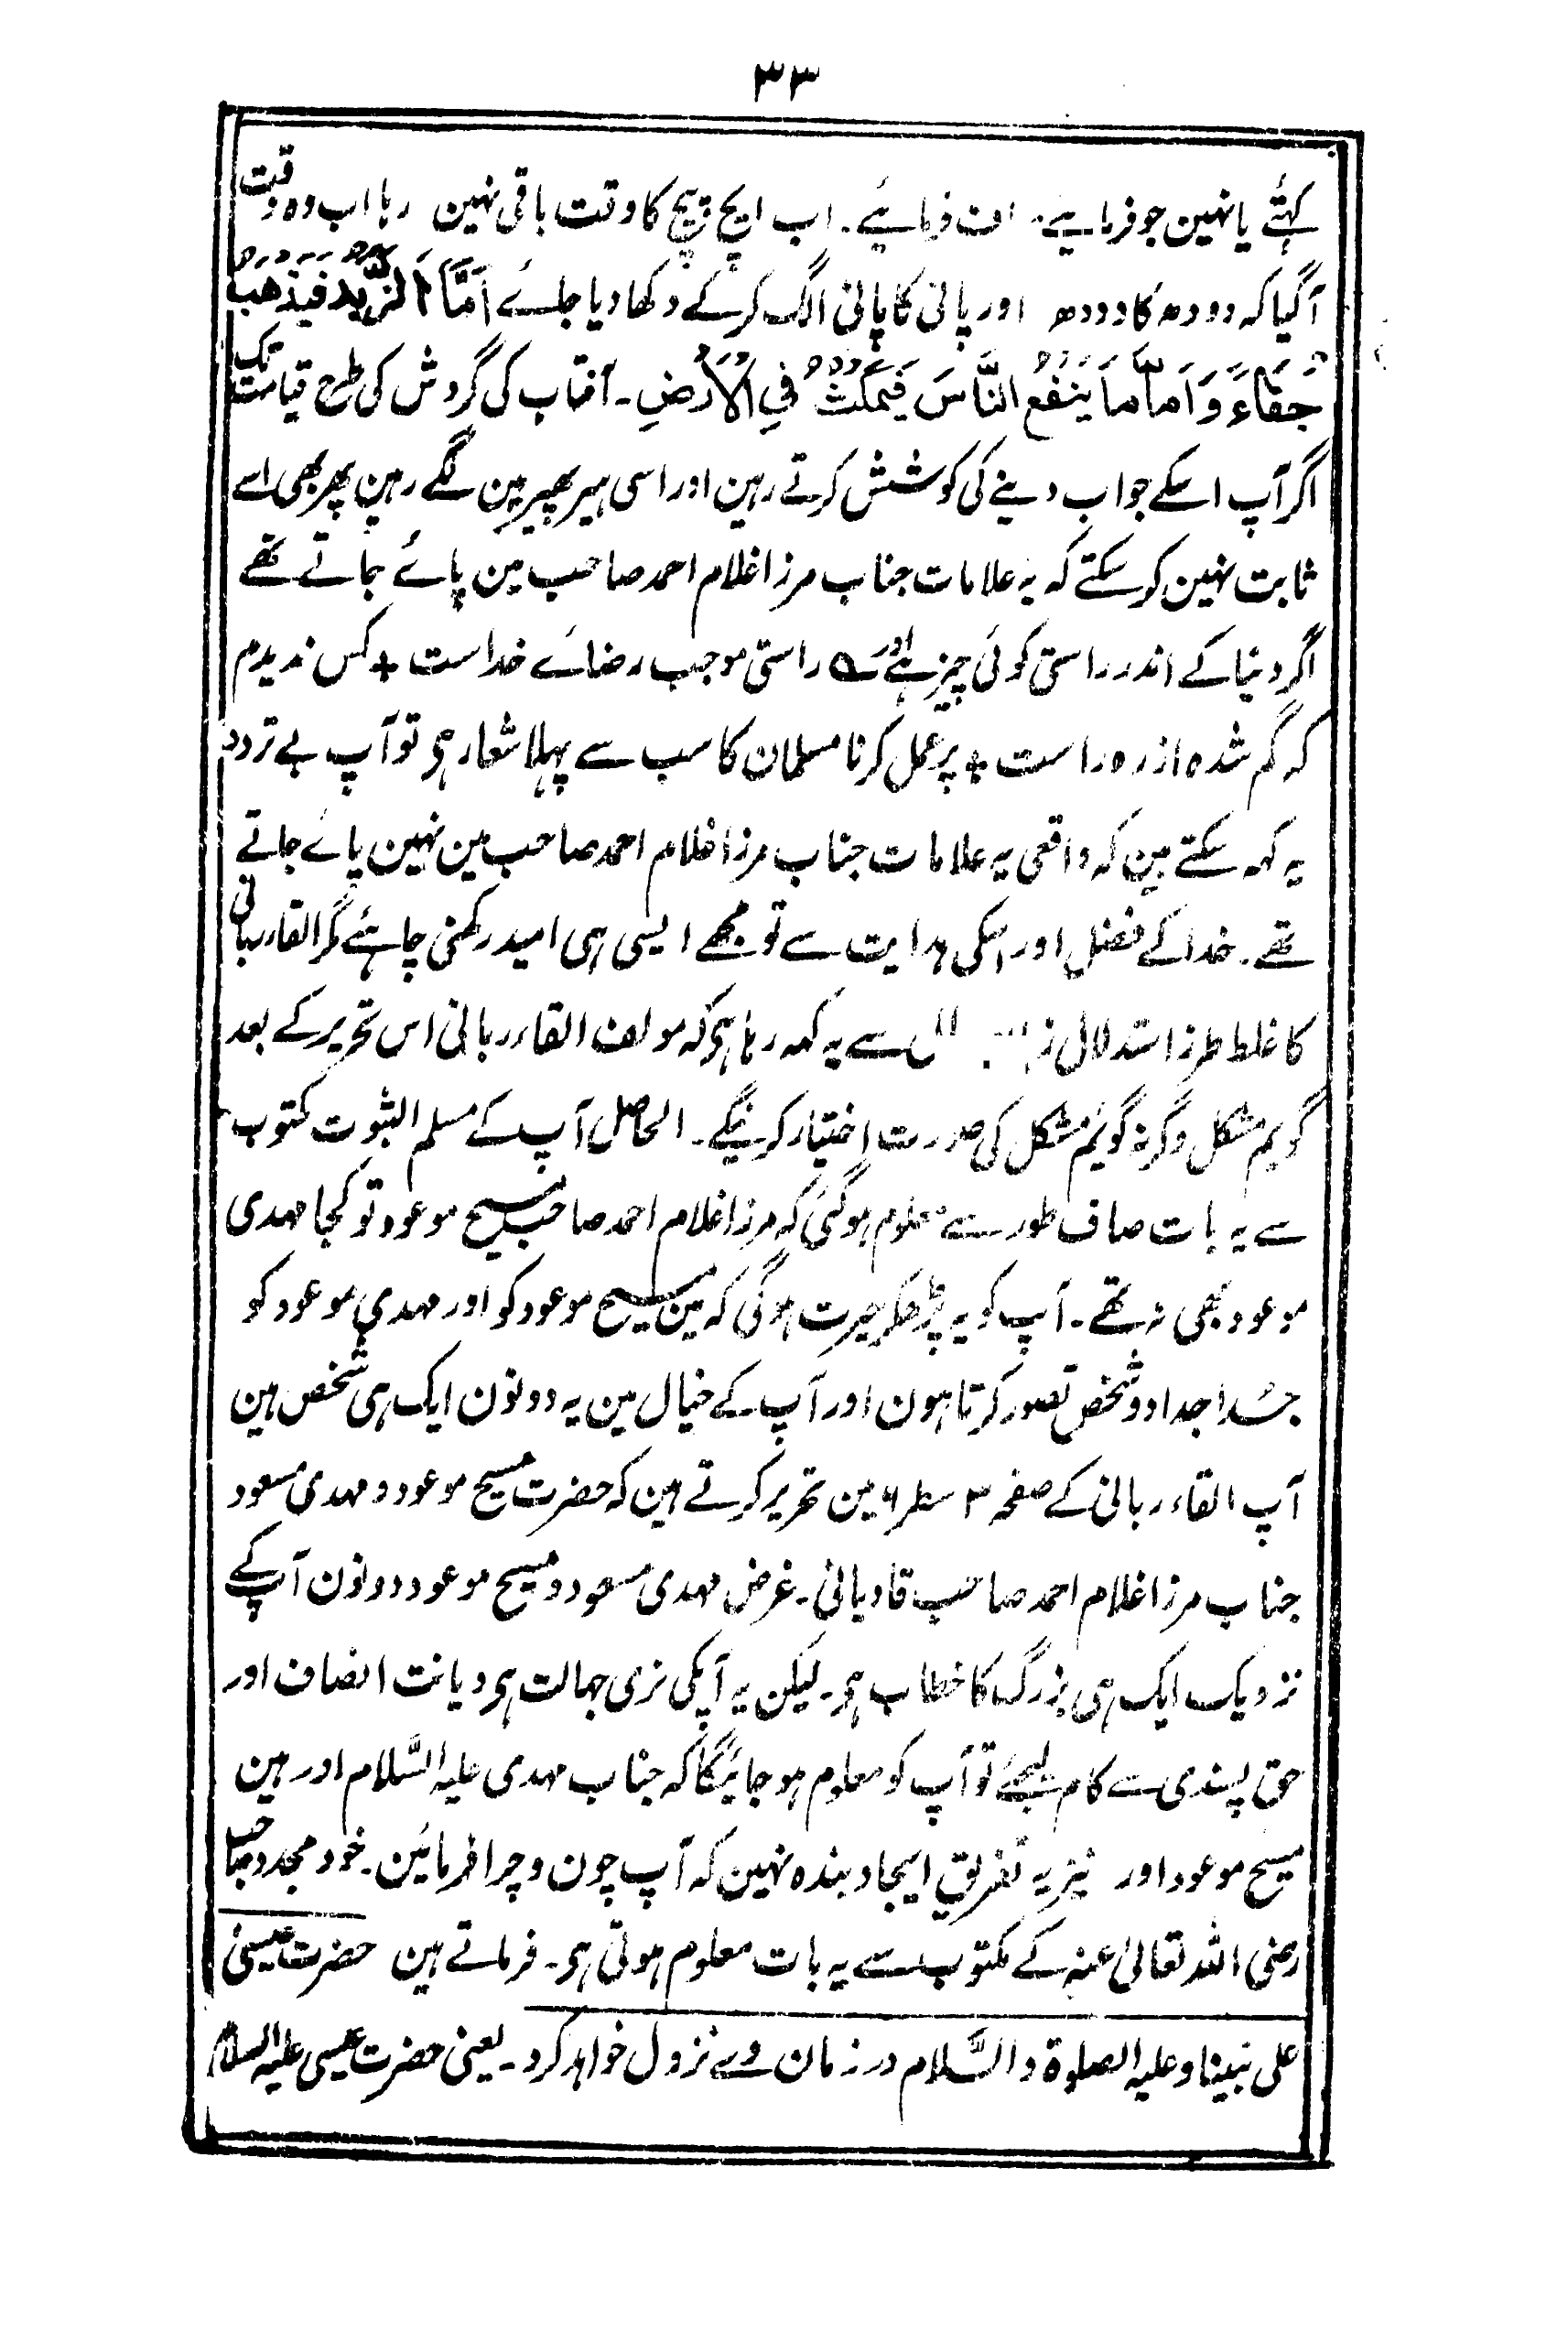 ۳۳
کہئے یا نہین جو فرمایئے صاف فرمایئے۔ اب ایچ پیچ کا وقت باقی نہین رہا اب وہ وقت
آگیا کہ دودھ کا دودھ اور پانی کا پانی الگ کرکے دکھا دیا جائے اَمَّا الزَّبَدُ فَیَذْهَبُ
جُفَاءً وَاَمَّا مَا یَنْفَعُ النَّاسَ فَیَمْکُثُ فِی الْاَرْضِ۔ آفتاب کی گردش کی طرح قیامت تک
اگر آپ اسکے جواب دینے کی کوشش کرتے رہین اور اسی ہیر پھیر مین لگے رہین پھر بھی اسے
ثابت نہین کر سکتے کہ یہ علامات جناب مرزا غلام احمد صاحب مین پائے جاتے تھے
اگر دنیا کے اندر راستی کوئی چیز ہے اور ؎ راستی موجب رضائے خداست + کس ندیدم
کہ گم شد ہ از رہ راست + پر عمل کرنا مسلمان کا سب سے پہلا شعار ہی تو آپ بے تردد
یہ کہہ سکتے ہین کہ واقعی یہ علامات جناب مرزا غلام احمد صاحب مین نہین پائے جاتے
تھے۔ خدا کے فضل اور اسکی ہدایت سے تو مجھے ایسی ہی امید رکھنی چاہئے مگر القاء ربانی
کا غلط طرز استدلال سے یہ کہہ رہا ہی کہ مولف القاء ربانی اس تحریر کے بعد
گویم مشکل وگرنہ گویم مشکل کی صورت اختیار کرینگے۔ الحاصل آپ کے مسلم الثبوت مکتوب
سے یہ بات صاف طور سے معلوم ہوگئی کہ مرزا غلام احمد صاحب مسیح موعود تو کجا مہدی
موعود بھی نہ تھے۔ آپ کو یہ پڑھکر حیرت ہوگی کہ مین مسیح موعود کو اور مہدی موعود کو
جدا جدا دو شخص تصور کرتا ہون اور آپ کے خیال مین یہ دونون ایک ہی شخص ہین
آپ القاء ربانی کے صفحہ ۳ سطر ۶ مین تحریر کرتے ہین کہ حضرت مسیح موعود و مہدی مسعود
جناب مرزا غلام احمد صاحب قادیانی۔ غرض مہدی مسعود و مسیح موعود دونون آپ کے
نزدیک ایک ہی بزرگ کا خطاب ہی۔ لیکن یہ آپکی نری جہالت ہی دیانت انصاف اور
حق پسندی سے کام لیجئے تو آپ کو معلوم ہو جائیگا کہ جناب مہدی علیہ السَّلام اور ہین
مسیح موعود اور نیز یہ تفریق ایجاد بندہ نہین کہ آپ چون و چرا فرمائین۔ خود مجدد صاحب
رضی اللہ تعالیٰ عنہ کے مکتوب سے یہ بات معلوم ہوتی ہی۔ فرماتے ہین حضرت عیسیٰ
علی نبینا وعلیہ الصلوۃ والسَّلام در زمان وے نزول خواہد کرد۔ یعنی حضرت عیسی علیہ السلام